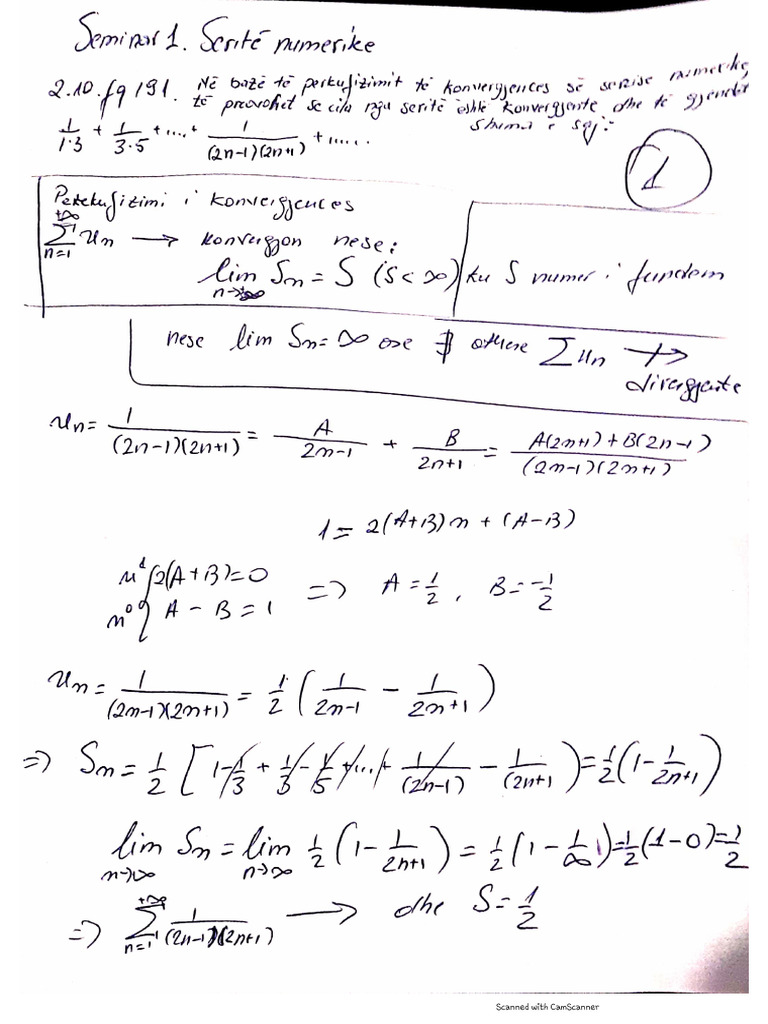 Seminar 1. Seritë numerike
2.10. fq 191. Në bazë të perkufizimit të konvergjences së serise numerike,
të provohet se cila nga seritë është konvergjente dhe të gjendet
shuma e saj:
1/1·3 + 1/3·5 + .... + 1/(2n-1)(2n+1) + .....
1
Perkufizimi i konvergjences
+∞ ∑ n=1 Un → konvergjon nese:
lim n→∞ Sn = S (S < ∞) ku S numer i fundem
nese lim Sn = ∞ ose ∄ athere ∑ Un ↛
divergjente
Un = 1/(2n-1)(2n+1) = A/2n-1 + B/2n+1 = A(2n+1) + B(2n-1)/(2n-1)(2n+1)
1 = 2(A+B)n + (A-B)
n¹ { 2(A+B) = 0
n⁰ { A - B = 1 => A = 1/2, B = -1/2
Un = 1/(2n-1)(2n+1) = 1/2 (1/2n-1 - 1/2n+1)
=> Sn = 1/2 [1 - 1/3 + 1/3 - 1/5 + ... + 1/(2n-1) - 1/(2n+1) ) = 1/2 (1 - 1/2n+1)
lim n→∞ Sn = lim n→∞ 1/2 (1 - 1/2n+1) = 1/2 (1 - 1/∞) = 1/2 (1-0) = 1/2
=> +∞ ∑ n=1 1/(2n-1)(2n+1) → dhe S = 1/2
Scanned with CamScanner